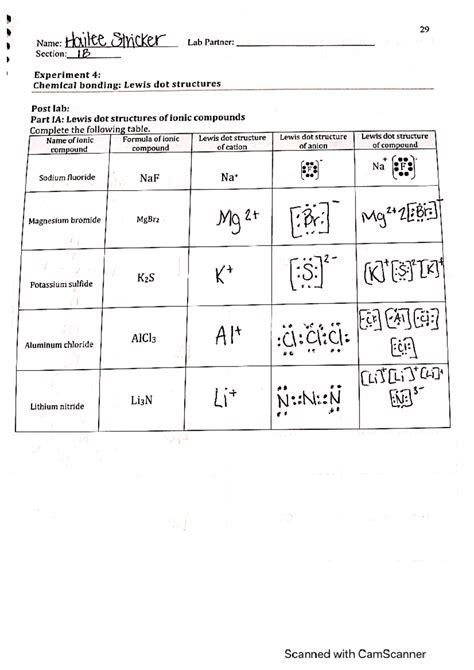 29
Name: Hailee Stricker Lab Partner:
Section: 1B
Experiment 4:
Chemical bonding: Lewis dot structures
Post lab:
Part IA: Lewis dot structures of ionic compounds
Complete the following table.
Name of ionic compound Formula of ionic compound Lewis dot structure of cation Lewis dot structure of anion Lewis dot structure of compound
Sodium fluoride NaF Na⁺ [:F:]⁻ Na⁺ [:F:]⁻
Magnesium bromide MgBr₂ Mg²⁺ [:Br:]⁻ Mg²⁺2[:Br:]⁻
Potassium sulfide K₂S K⁺ [:S:]²⁻ [K]⁺[:S:]²⁻[K]⁺
Aluminum chloride AlCl₃ Al⁺ :Cl:Cl:Cl: [Al]
Lithium nitride Li₃N Li⁺ N::N::N [Li]⁺[Li]⁺[Li]⁺
[:N:]³⁻
Scanned with CamScanner